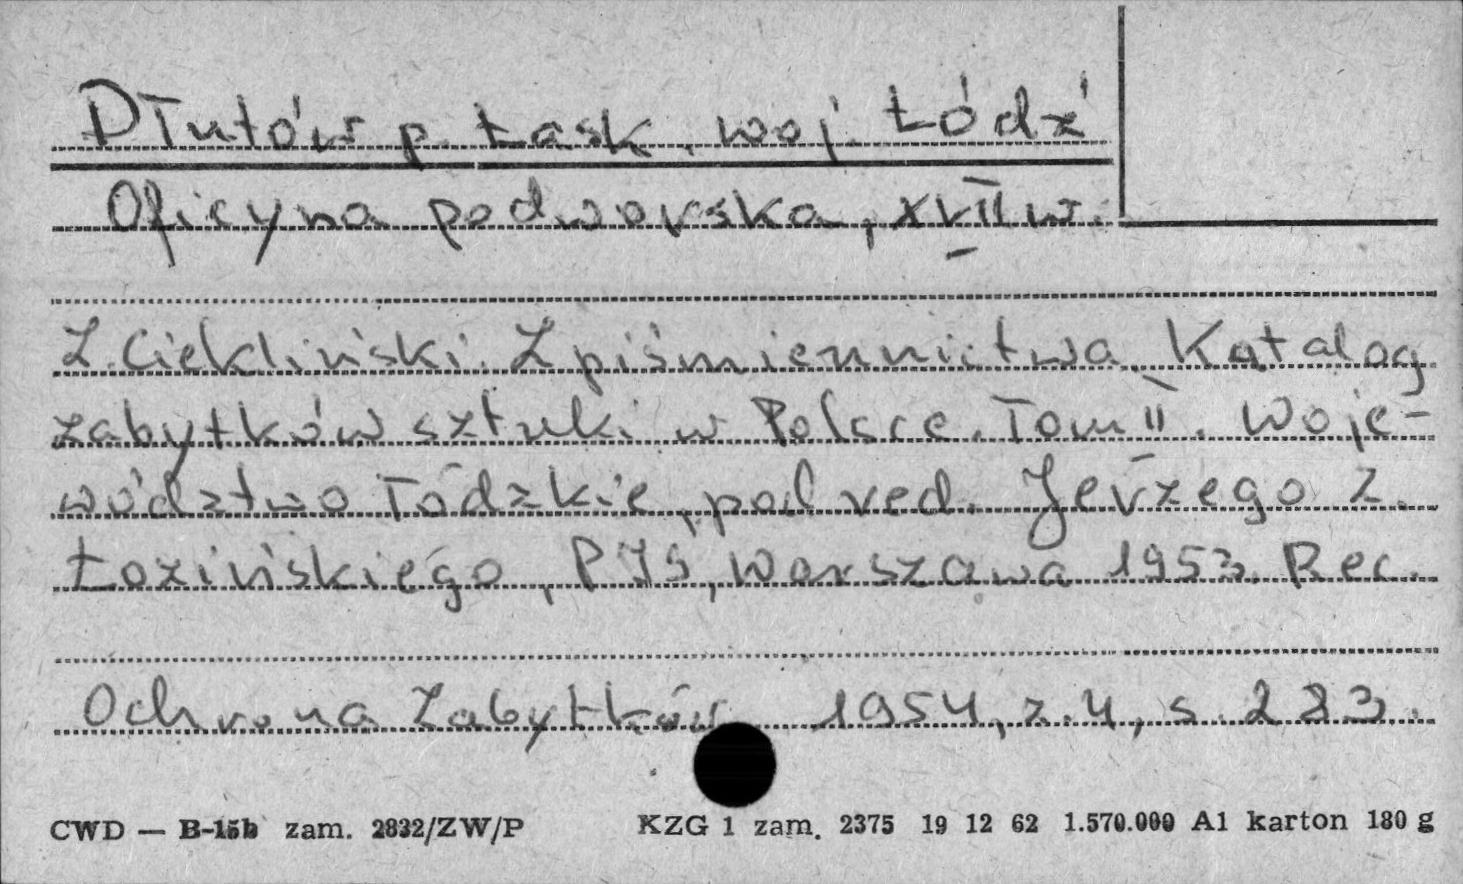 Dłutów p. Łask, woj. Łódź
Oficyna podworska, XVII w.
Z. Ciekliński. Z piśmiennictwa. Katalog
zabytków sztuki w Polsce. Tom II. Woje-
wództwo łódzkie, pod red. Jerzego Z.
Łozińskiego, PIS, Warszawa 1953. Rec.
Ochrona Zabytków 1954, z. 4, s. 283.
CWD — B-15b zam. 2832/ZW/P KZG 1 zam. 2375 19 12 62 1.570.000 A1 karton 180 g